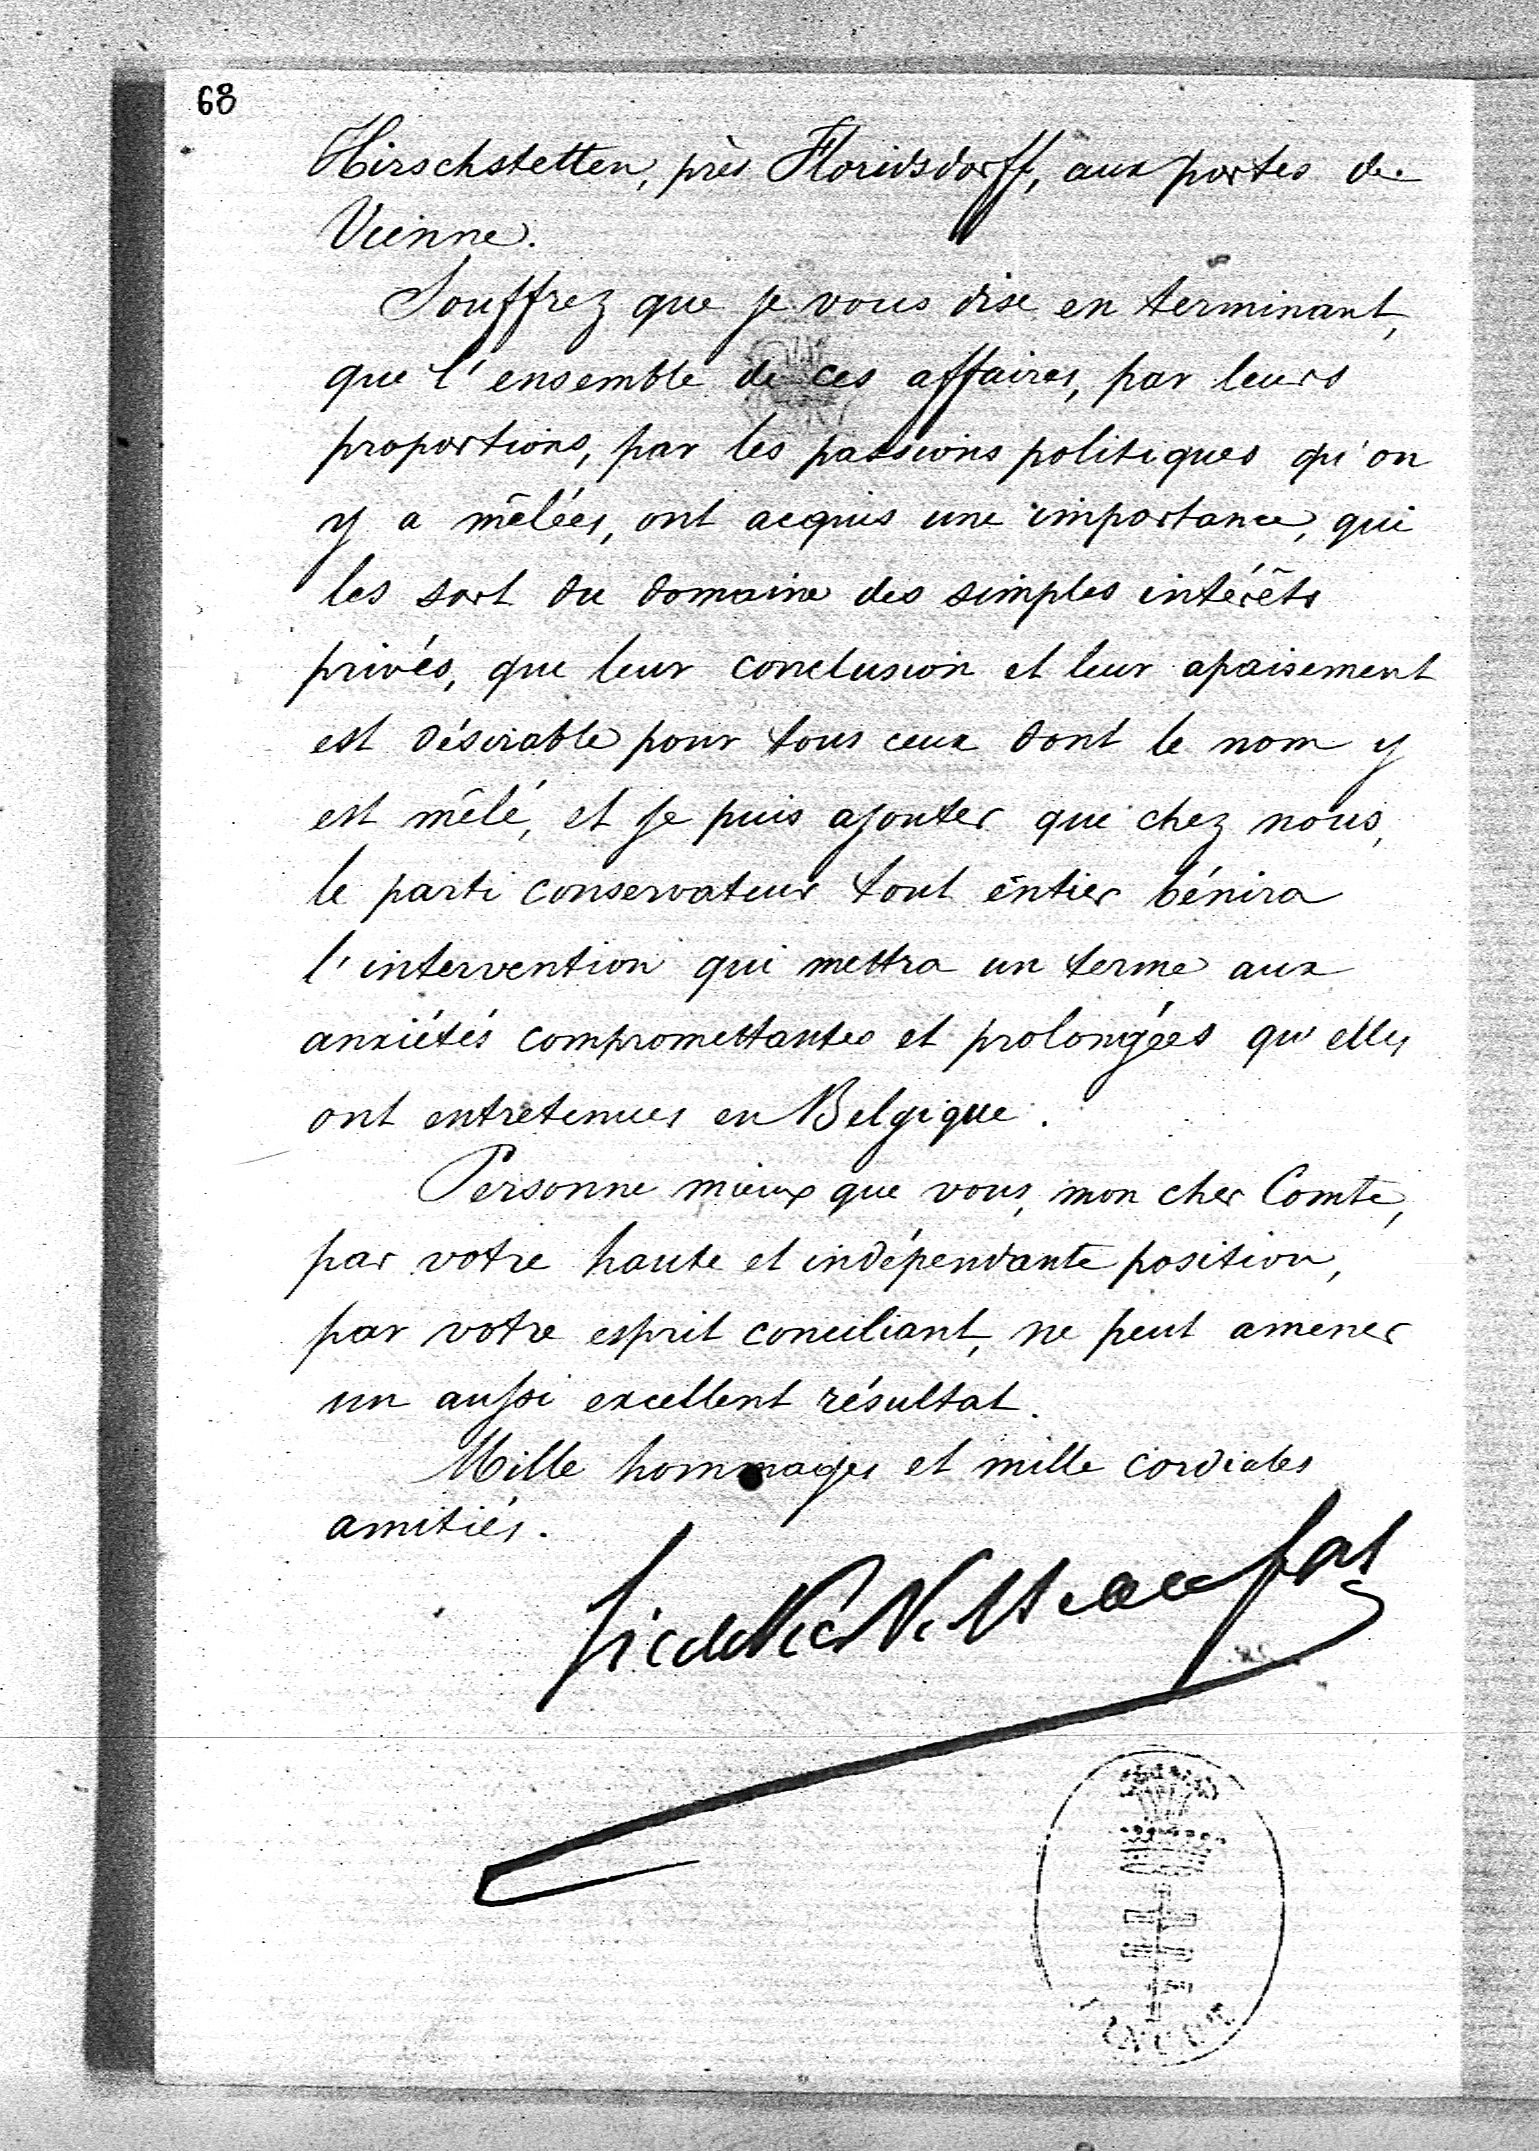 68
Hirschstetten, près Floridsdorff, aux portes de
Vienne.
Souffrez que je vous dise en terminant,
que l'ensemble de ces affaires, par leurs
proportions, par les passions politiques qu'on
y a mêlées, ont acquis une importance, qui
les sort du domaine des simples intérêts
privés, que leur conclusion et leur apaisement
est désirable pour tous ceux dont le nom y
est mêlé, et je puis ajouter que chez nous,
le parti conservateur tout entier bénira
l'intervention qui mettra un terme aux
anxiétés compromettantes et prolongées qu'elles
ont entretenues en Belgique.
Personne mieux que vous, mon cher Comte,
par votre haute et indépendante position,
par votre esprit conciliant, ne peut amener
un aussi excellent résultat.
Mille hommages et mille cordiales
amitiés.